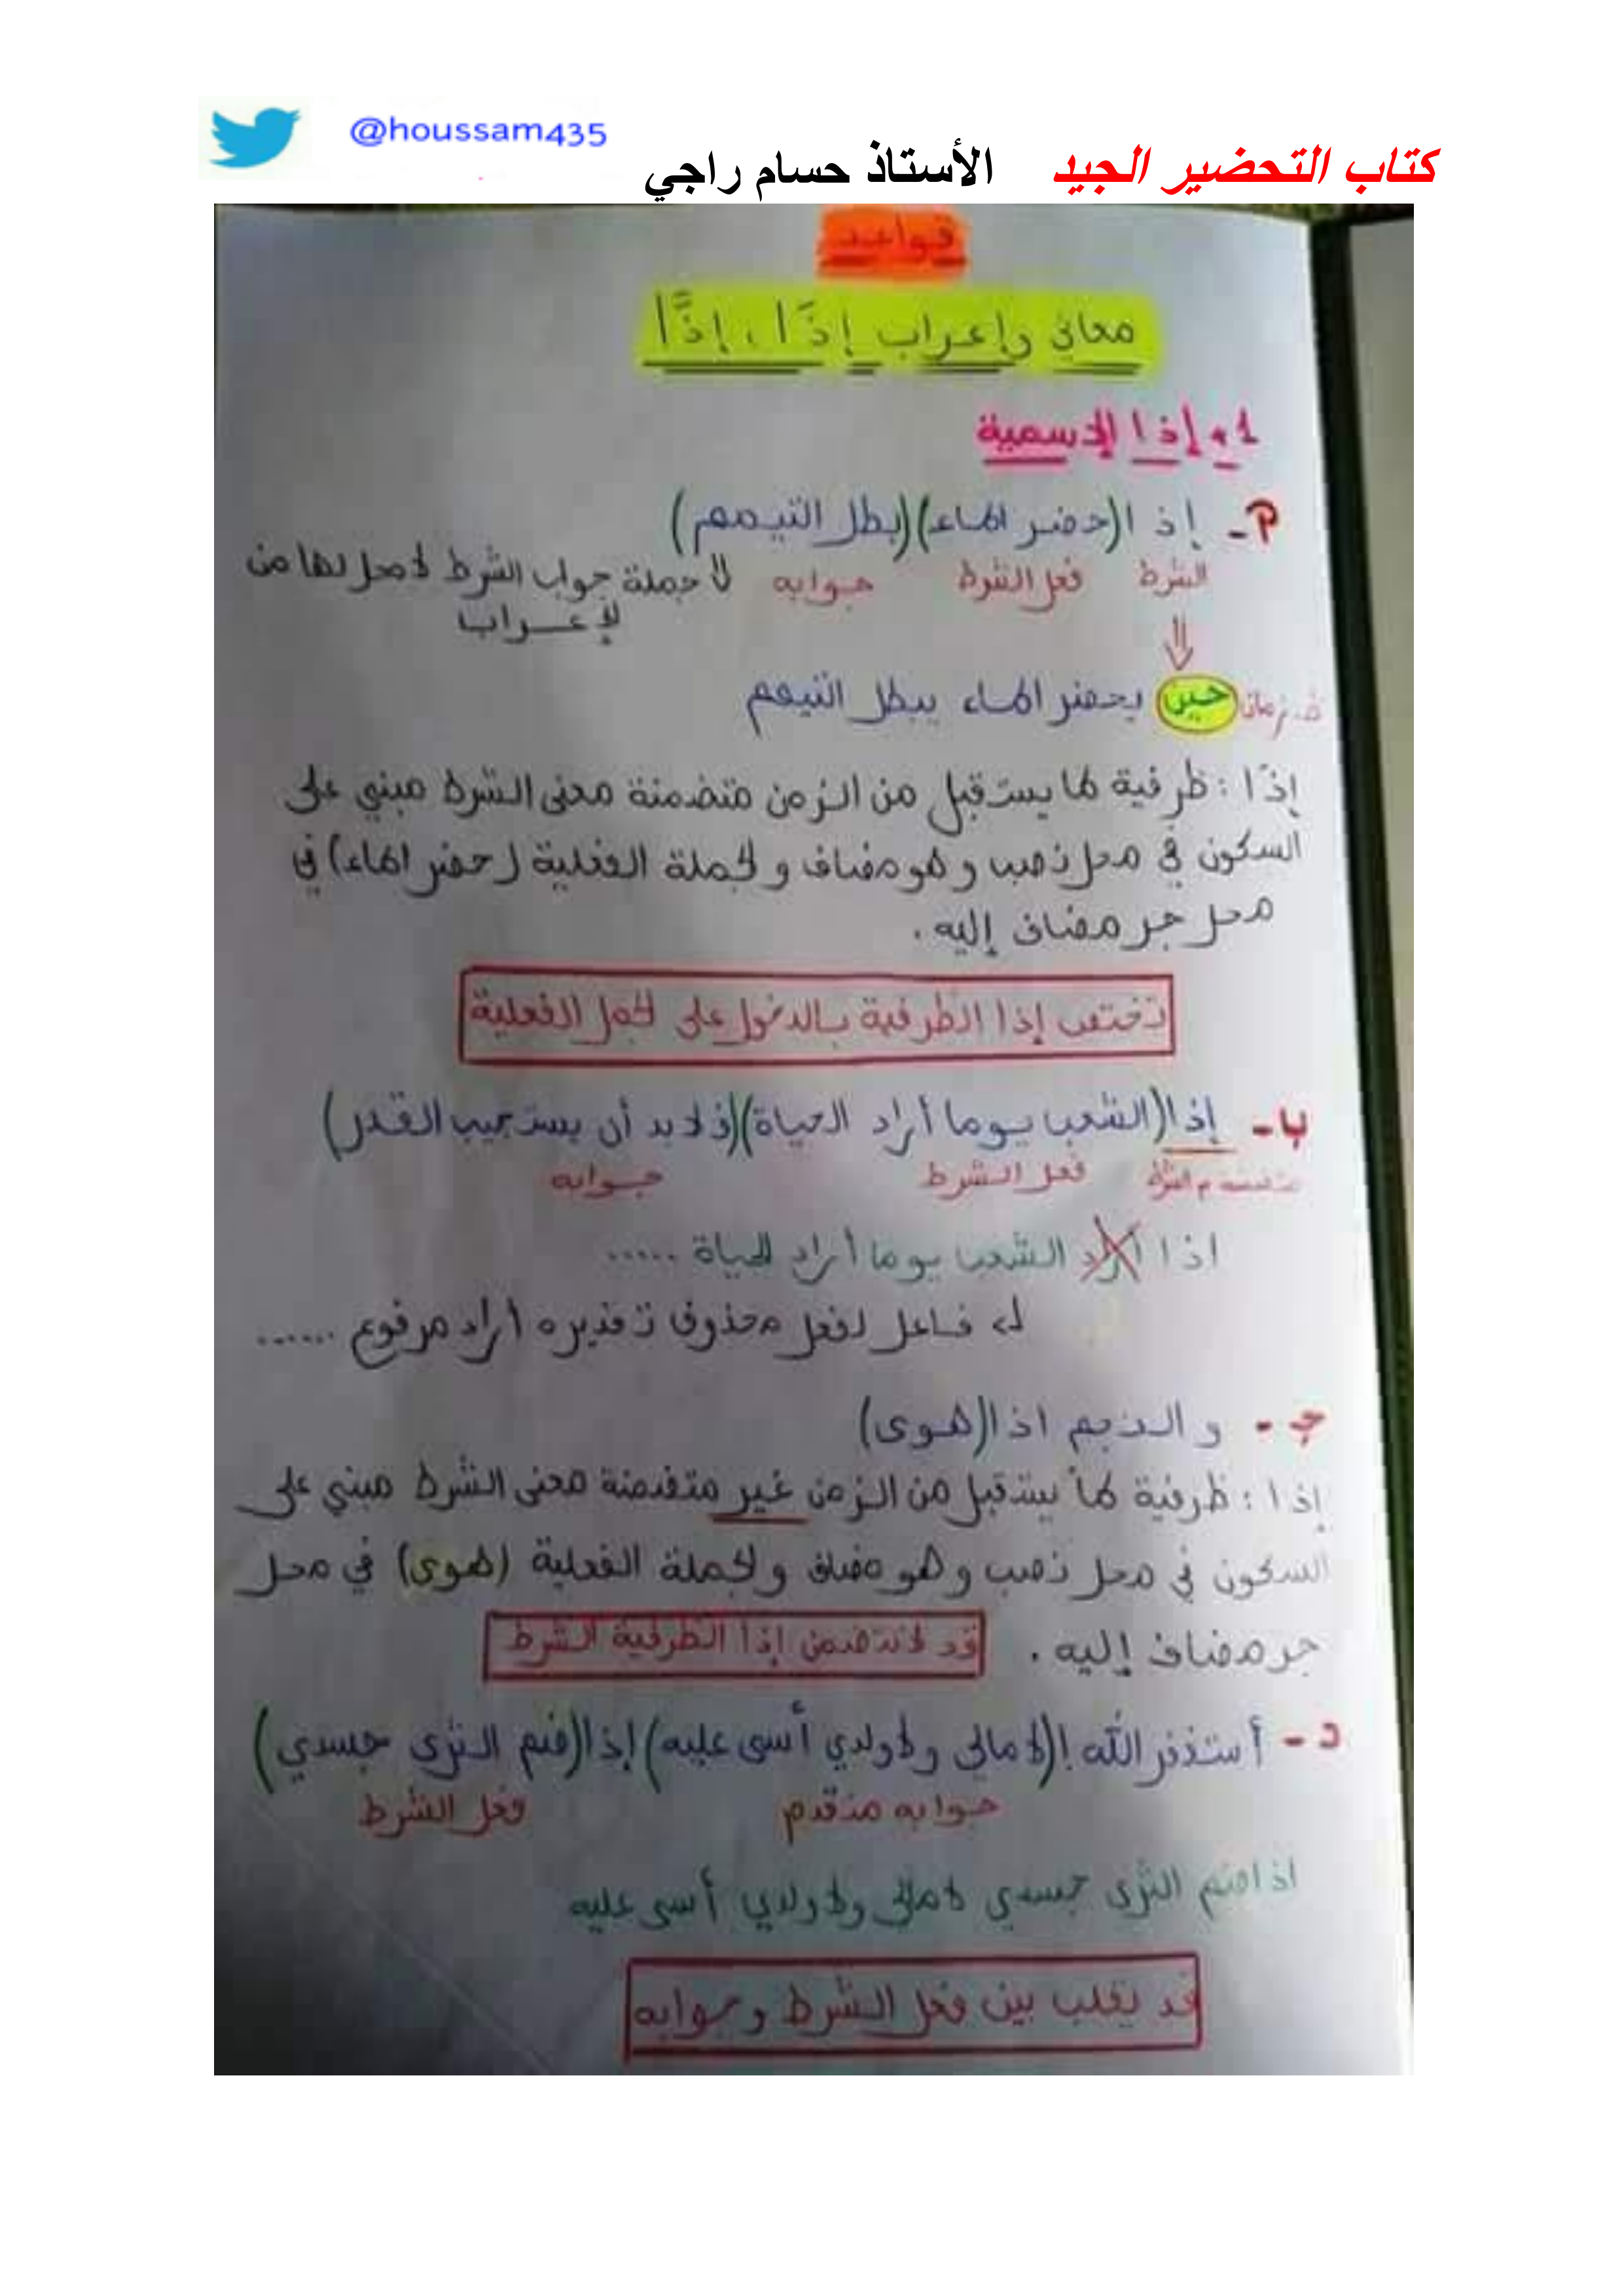 @houssam435
كتاب التحضير الجيد الأستاذ حسام راجي
قواعد
معاني وإعراب إذَا ، إذًا
1. إذا الإسمية
أ- إذا (حضر الماء)(بطل التيمم)
الشرط فعل الشرط جوابه جملة جواب الشرط لا محل لها من
الإعراب
ظ. زمان حين يحضر الماء يبطل التيمم
إذَا : ظرفية لما يستقبل من الزمن متضمنة معنى الشرط مبني على
السكون في محل نصب و هو مضاف و الجملة الفعلية (حضر الماء) في
محل جر مضاف إليه .
تختص إذا الظرفية بالدخول على الجمل الفعلية
ب- إذا (الشعب يوما أراد الحياة)(فلا بد أن يستجيب القدر)
فعل الشرط جوابه
اذا أراد الشعب يوما أراد الحياة .....
فاعل لفعل محذوف تقديره أراد مرفوع ......
ج- و النجم اذا (هوى)
إذا : ظرفية لما يستقبل من الزمن غير متضمنة معنى الشرط مبني على
السكون في محل نصب و هو مضاف و الجملة الفعلية (هوى) في محل
جر مضاف إليه . قد لا تتضمن إذا الظرفية الشرط
د- أستغفر الله ! (لا مالي ولا ولدي أسى عليه) إذا (ضم الثرى جسدي)
جوابه متقدم فعل الشرط
اذا ضم الثرى جسدي لا مالي ولا ولدي أسى عليه
قد يقلب بين فعل الشرط و جوابه